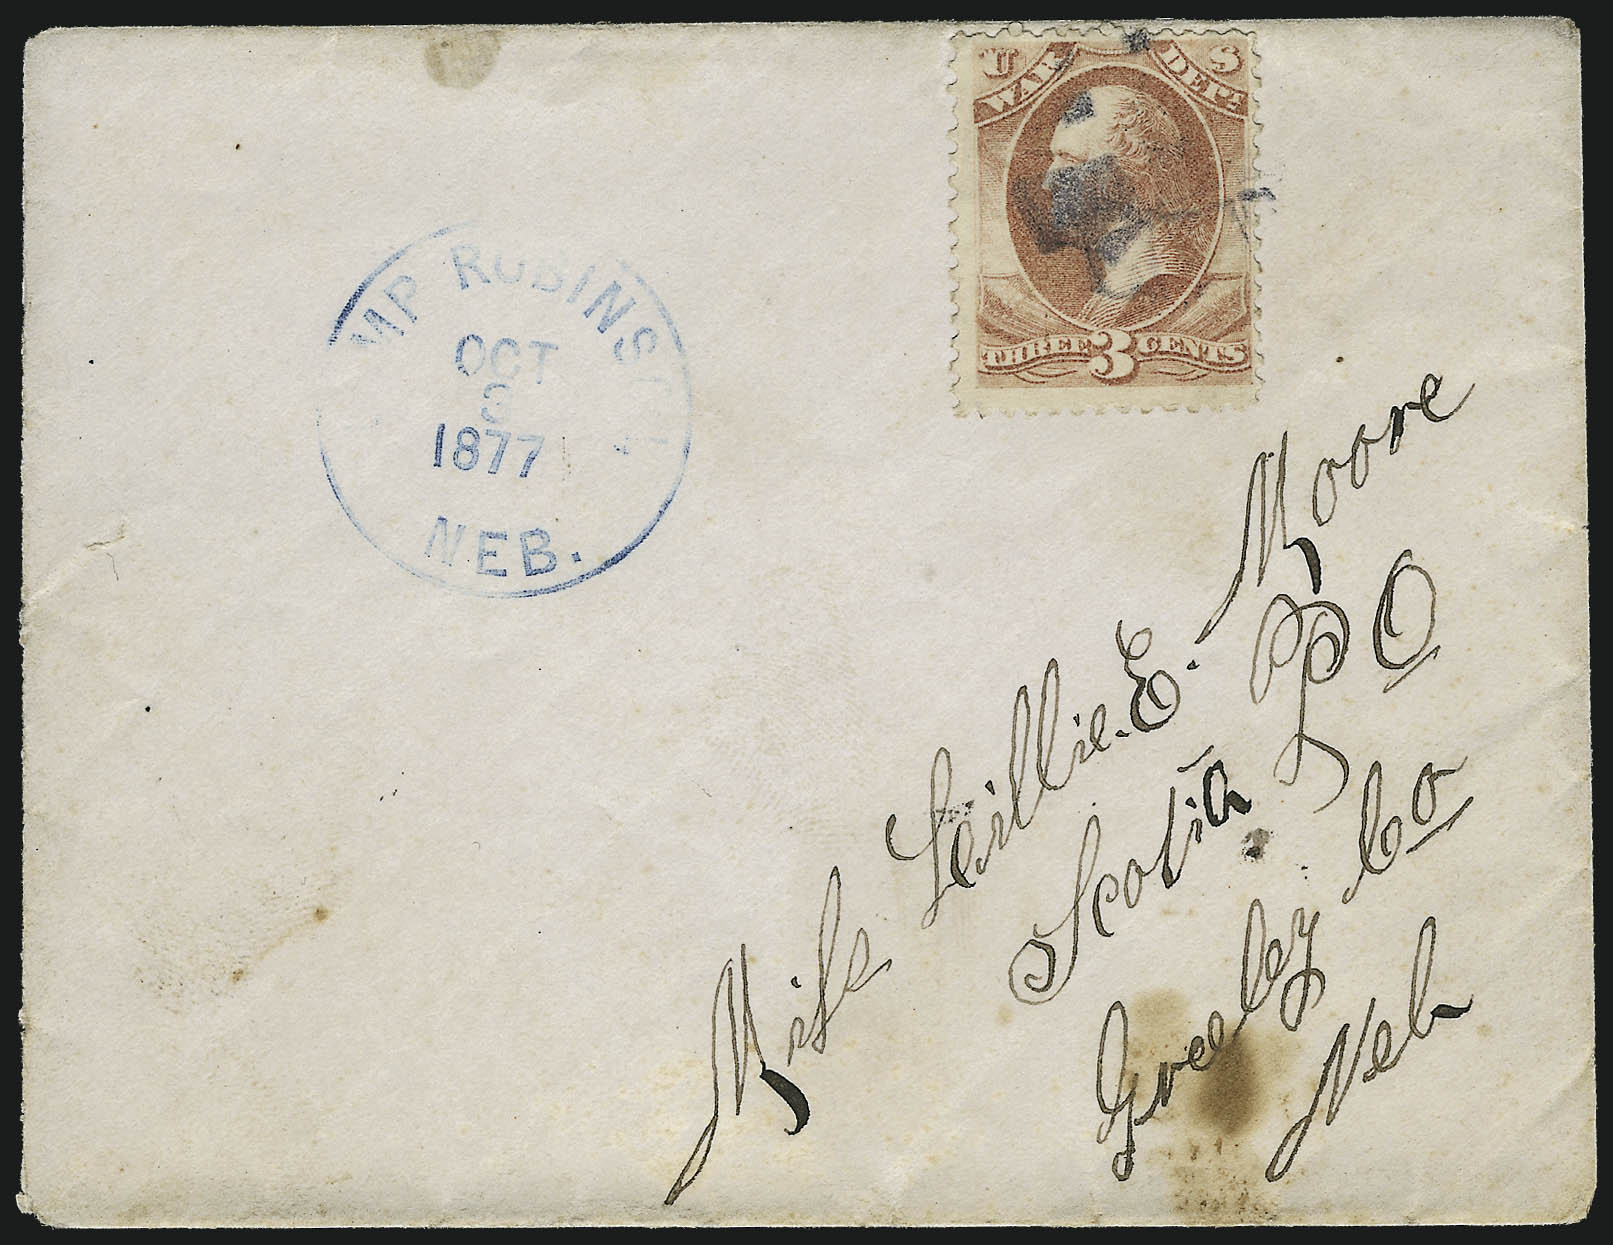 U S
WAR DEPT.
THREE 3 CENTS
MP ROBINS
OCT
3
1877
NEB.
Miss Lillie. E. Moore
Scotia PO
Greeley Co
Neb